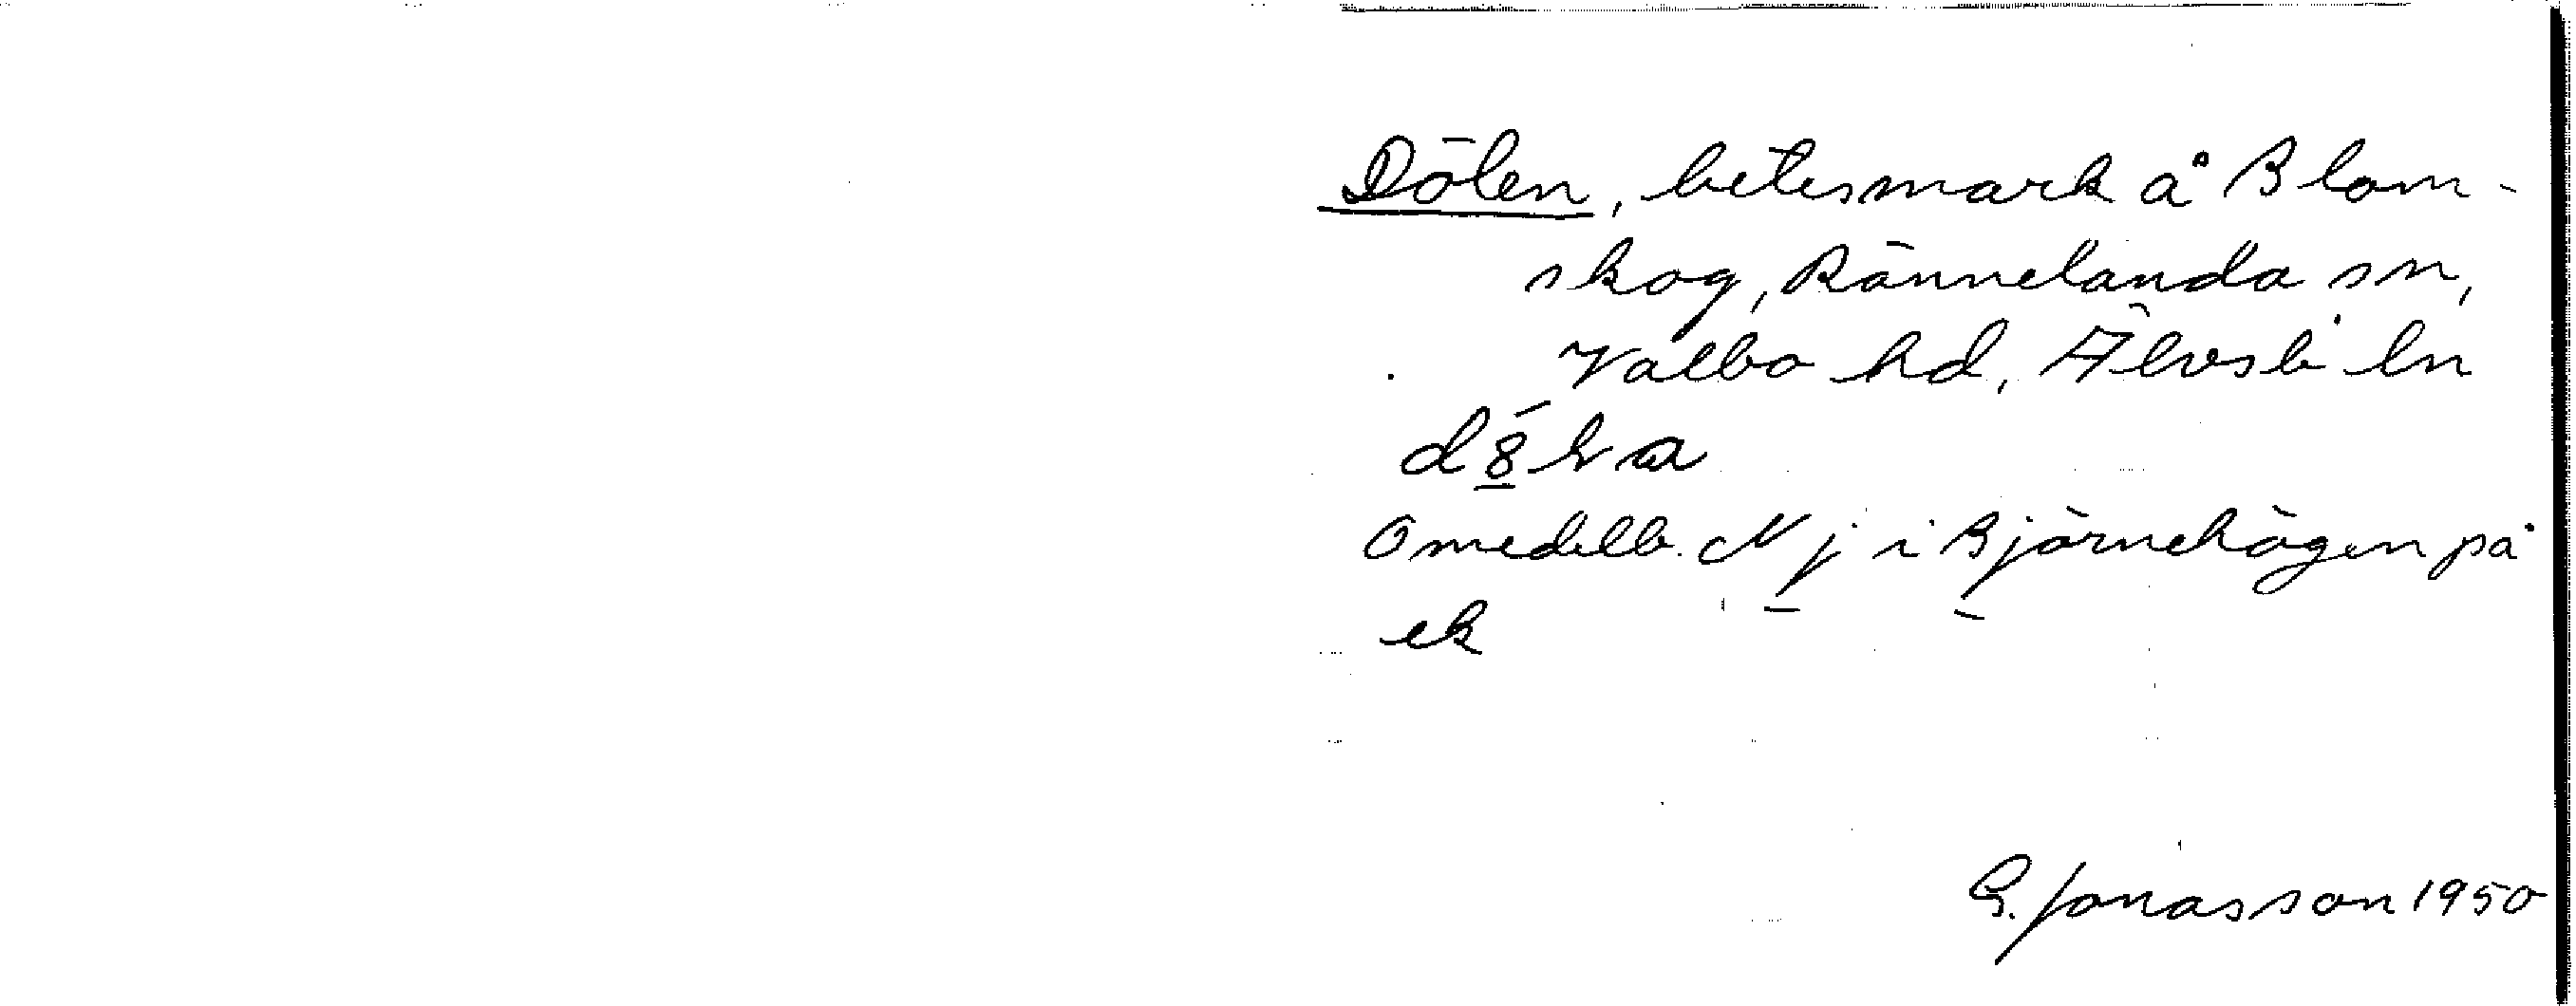 Dölen, betesmark å Blom-
skog, Rännelanda sn,
Valbo hd, Älvsb ln
Omedelb. N j i Björnehögen på
ek
G. Jonasson 1950